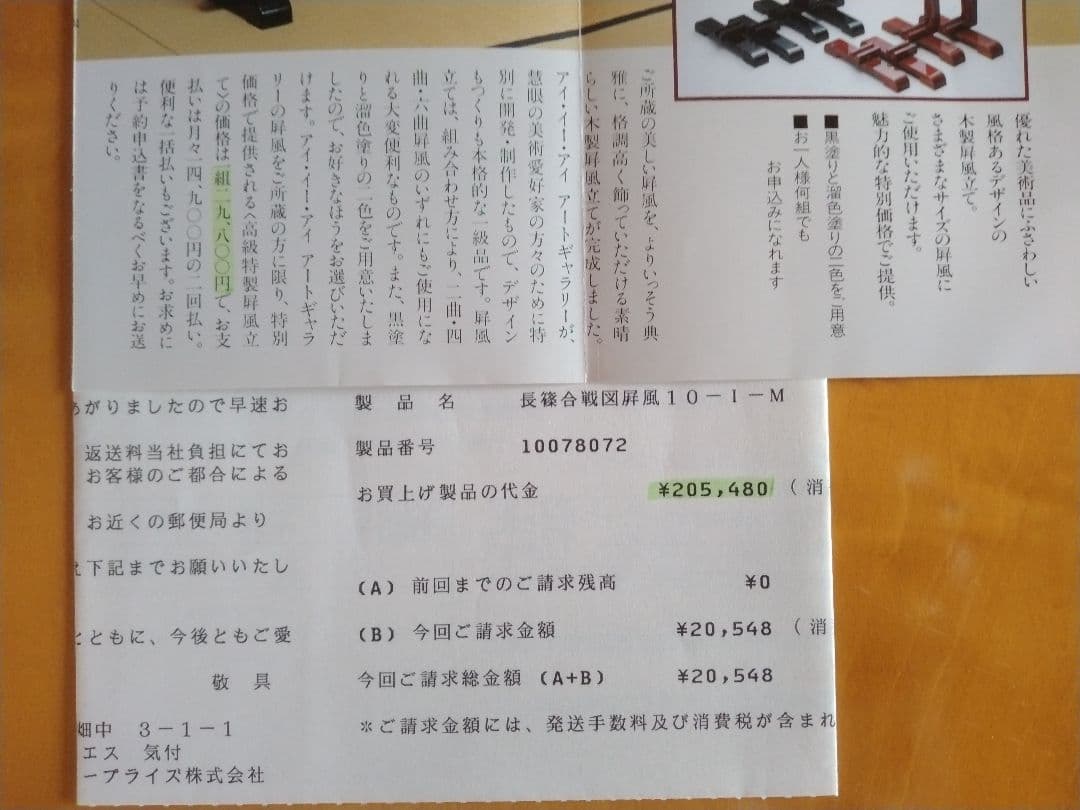 優れた美術品にふさわしい
風格あるデザインの
木製屏風立て。
さまざまなサイズの屏風に
ご使用いただけます。
魅力的な特別価格でご提供。
■黒塗りと溜色塗りの二色をご用意
■お一人様何組でも
お申込みになれます
ご所蔵の美しい屏風を、よりいっそう典
雅に、格調高く飾っていただける素晴
らしい木製屏風立てが完成しました。
アイ・イー・アイ アートギャラリーが、
慧眼の美術愛好家の方々のために特
別に開発・制作したもので、デザイン
もつくりも本格的な一級品です。屏風
立ては、組み合わせ方により、二曲・四
曲・六曲屏風のいずれにもご使用にな
れる大変便利なものです。また、黒塗
りと溜色塗りの二色をご用意いたしま
したので、お好きなほうをお選びいただ
けます。アイ・イー・アイ アートギャラ
リーの屏風をご所蔵の方に限り、特別
価格で提供される〈高級特製屏風立
て〉の価格は一組二九、八〇〇円で、お支
払いは月々一四、九〇〇円の二回払い。
便利な一括払いもございます。お求めに
は予約申込書をなるべくお早めにお送
りください。
がりましたので早速お
返送料当社負担にてお
お客様のご都合による
お近くの郵便局より
下記までお願いいたし
とともに、今後ともご愛
敬 具
畑中 3-1-1
エス 気付
ープライズ株式会社
製 品 名 長篠合戦図屏風10-I-M
製品番号 10078072
お買上げ製品の代金 ¥205,480 (消
(A) 前回までのご請求残高 ¥0
(B) 今回ご請求金額 ¥20,548 (消
今回ご請求総金額 (A+B) ¥20,548
※ご請求金額には、発送手数料及び消費税が含まれ